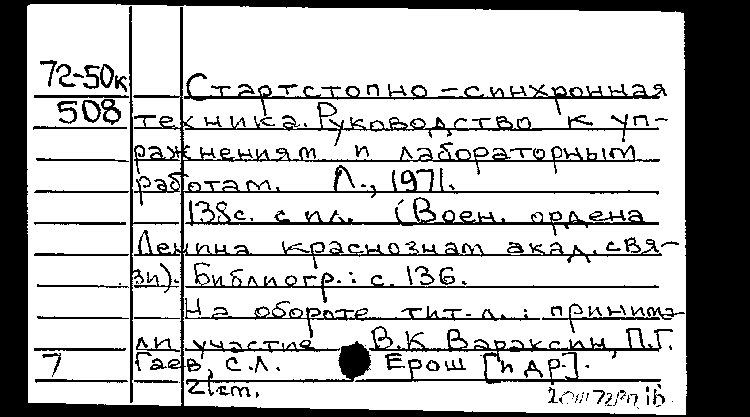 72-50к Стартстопно-синхронная
508 техника. Руководство к уп-
ражнениям и лабораторным
работам. Л., 1971.
138с. с ил. (Воен. ордена
Ленина краснознам акад. свя-
зи). Библиогр.: с. 136.
На обороте тит. л.: принима-
ли участие В.К Вараксин, П.Г.
7 Гаев, С.Л. Ерош [и др.].
21cm.